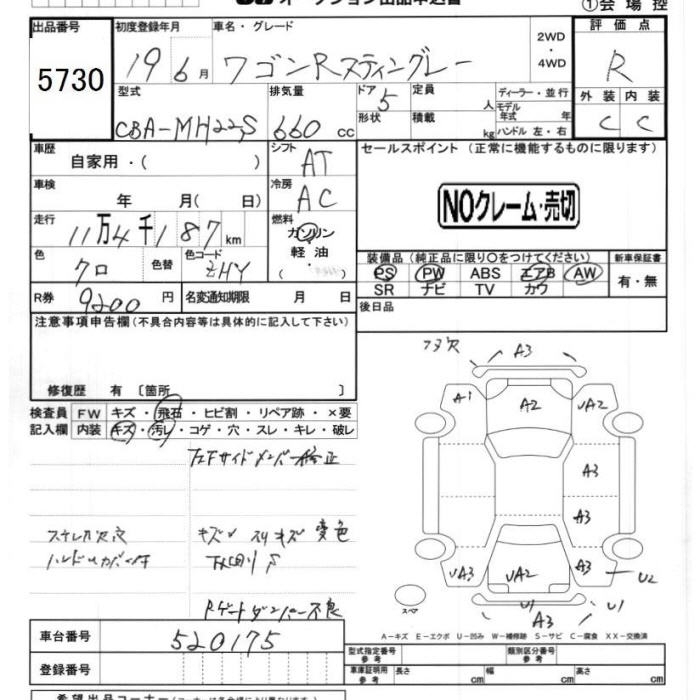 ①会場控
出品番号 初度登録年月 車名・グレード 2WD ・ 4WD 評価点
5730 19 6月 ワゴンRスティングレー R
型式 排気量 ドア 5 定員 人 ディーラー・並行 外装 内装
CBA-MH22S 660 cc 形状 積載 kg モデル年式 年 ハンドル 左・右 C C
車歴 自家用・( ) シフト AT セールスポイント (正常に機能するものに限ります)
車検 年 月( 日) 冷房 AC NOクレーム・売切
走行 11万4千187km 燃料 ガソリン・軽油 ( )
色 クロ 色替 色コード ZHY 装備品 (純正品に限り○をつけてください) 新車保証書
PS PW ABS エアB AW 有・無
SR ナビ TV カワ
R券 9200円 名変通知期限 月 日 後日品
注意事項申告欄(不具合内容等は具体的に記入して下さい)
修復歴 有 〔箇所 〕
検査員 FW キズ・飛石・ヒビ割・リペア跡・×要
記入欄 内装 キズ・汚レ・コゲ・穴・スレ・キレ・破レ
フタ欠 A3
A1 A2 UA2
A3
A3
UA3 UA2 A3 U2
U1 A3 U1
スペア
左右Fサイドメンバー修正
ステレオ欠穴 キズ スリキズ 変色
ハンドルカバー付 下回りS
Rゲートダンパー不良
A-キズ E-エクボ U-凹み W-補修跡 S-サビ C-腐食 XX-交換済
車台番号 520175
型式指定番号 参考 類別区分番号 参考
登録番号 車庫証明用 参考 長さ cm 幅 cm 高さ cm